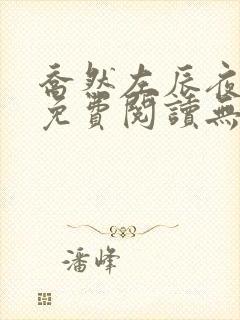 喬然左辰夜
免費閱讀無
潘峰